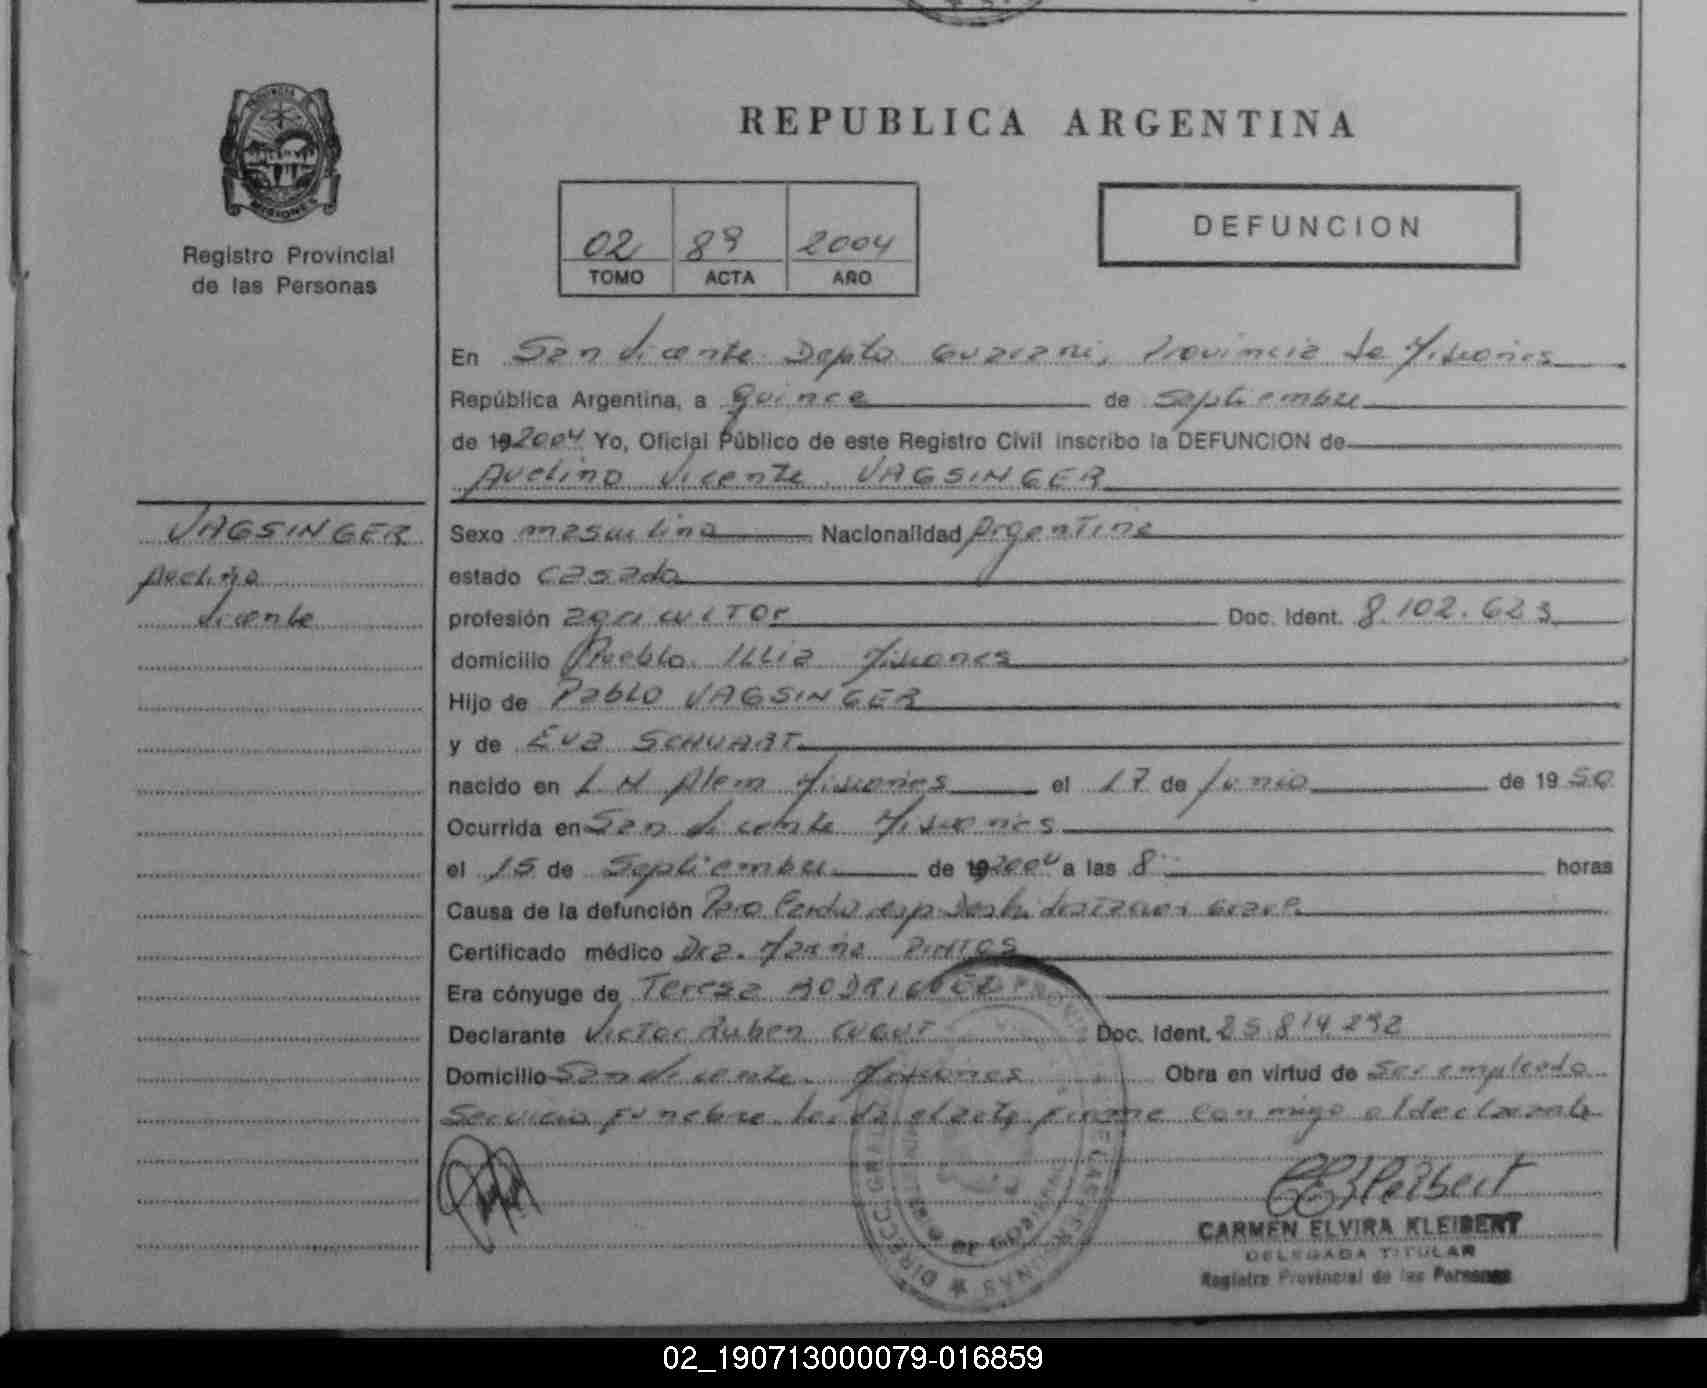 REPUBLICA ARGENTINA
PROVINCIA DE
MISIONES
Registro Provincial
de las Personas
02 89 2004
TOMO ACTA AÑO
DEFUNCION
En San Vicente Depto Guarani, Provincia de Misiones
República Argentina, a quince de septiembre
de 19 2004 Yo, Oficial Público de este Registro Civil inscribo la DEFUNCION de
Avelino Vicente VAGSINGER
VAGSINGER
Avelino
Vicente
Sexo masculino Nacionalidad Argentina
estado casado
profesión agricultor Doc. Ident. 8.102.623
domicilio Pueblo Illia Misiones
Hijo de Pablo VAGSINGER
y de Eva SCHUART
nacido en L. N Alem Misiones el 17 de Junio de 19 50
Ocurrida en San Vicente Misiones
el 15 de Septiembre de 19 2004 a las 8 horas
Causa de la defunción Paro Cardio resp Deshidratacion Grave
Certificado médico Dra. Maria PINTOS
Era cónyuge de Teresa RODRIGUEZ
Declarante Victor Ruben Doc. Ident. 25.814.292
Domicilio San Vicente Misiones Obra en virtud de Ser empleado
Servicio Funebre leida el acta firme conmigo el declarante
CEKleibert
CARMEN ELVIRA KLEIBERT
DELEGADA TITULAR
Registro Provincial de las Personas
02_190713000079-016859